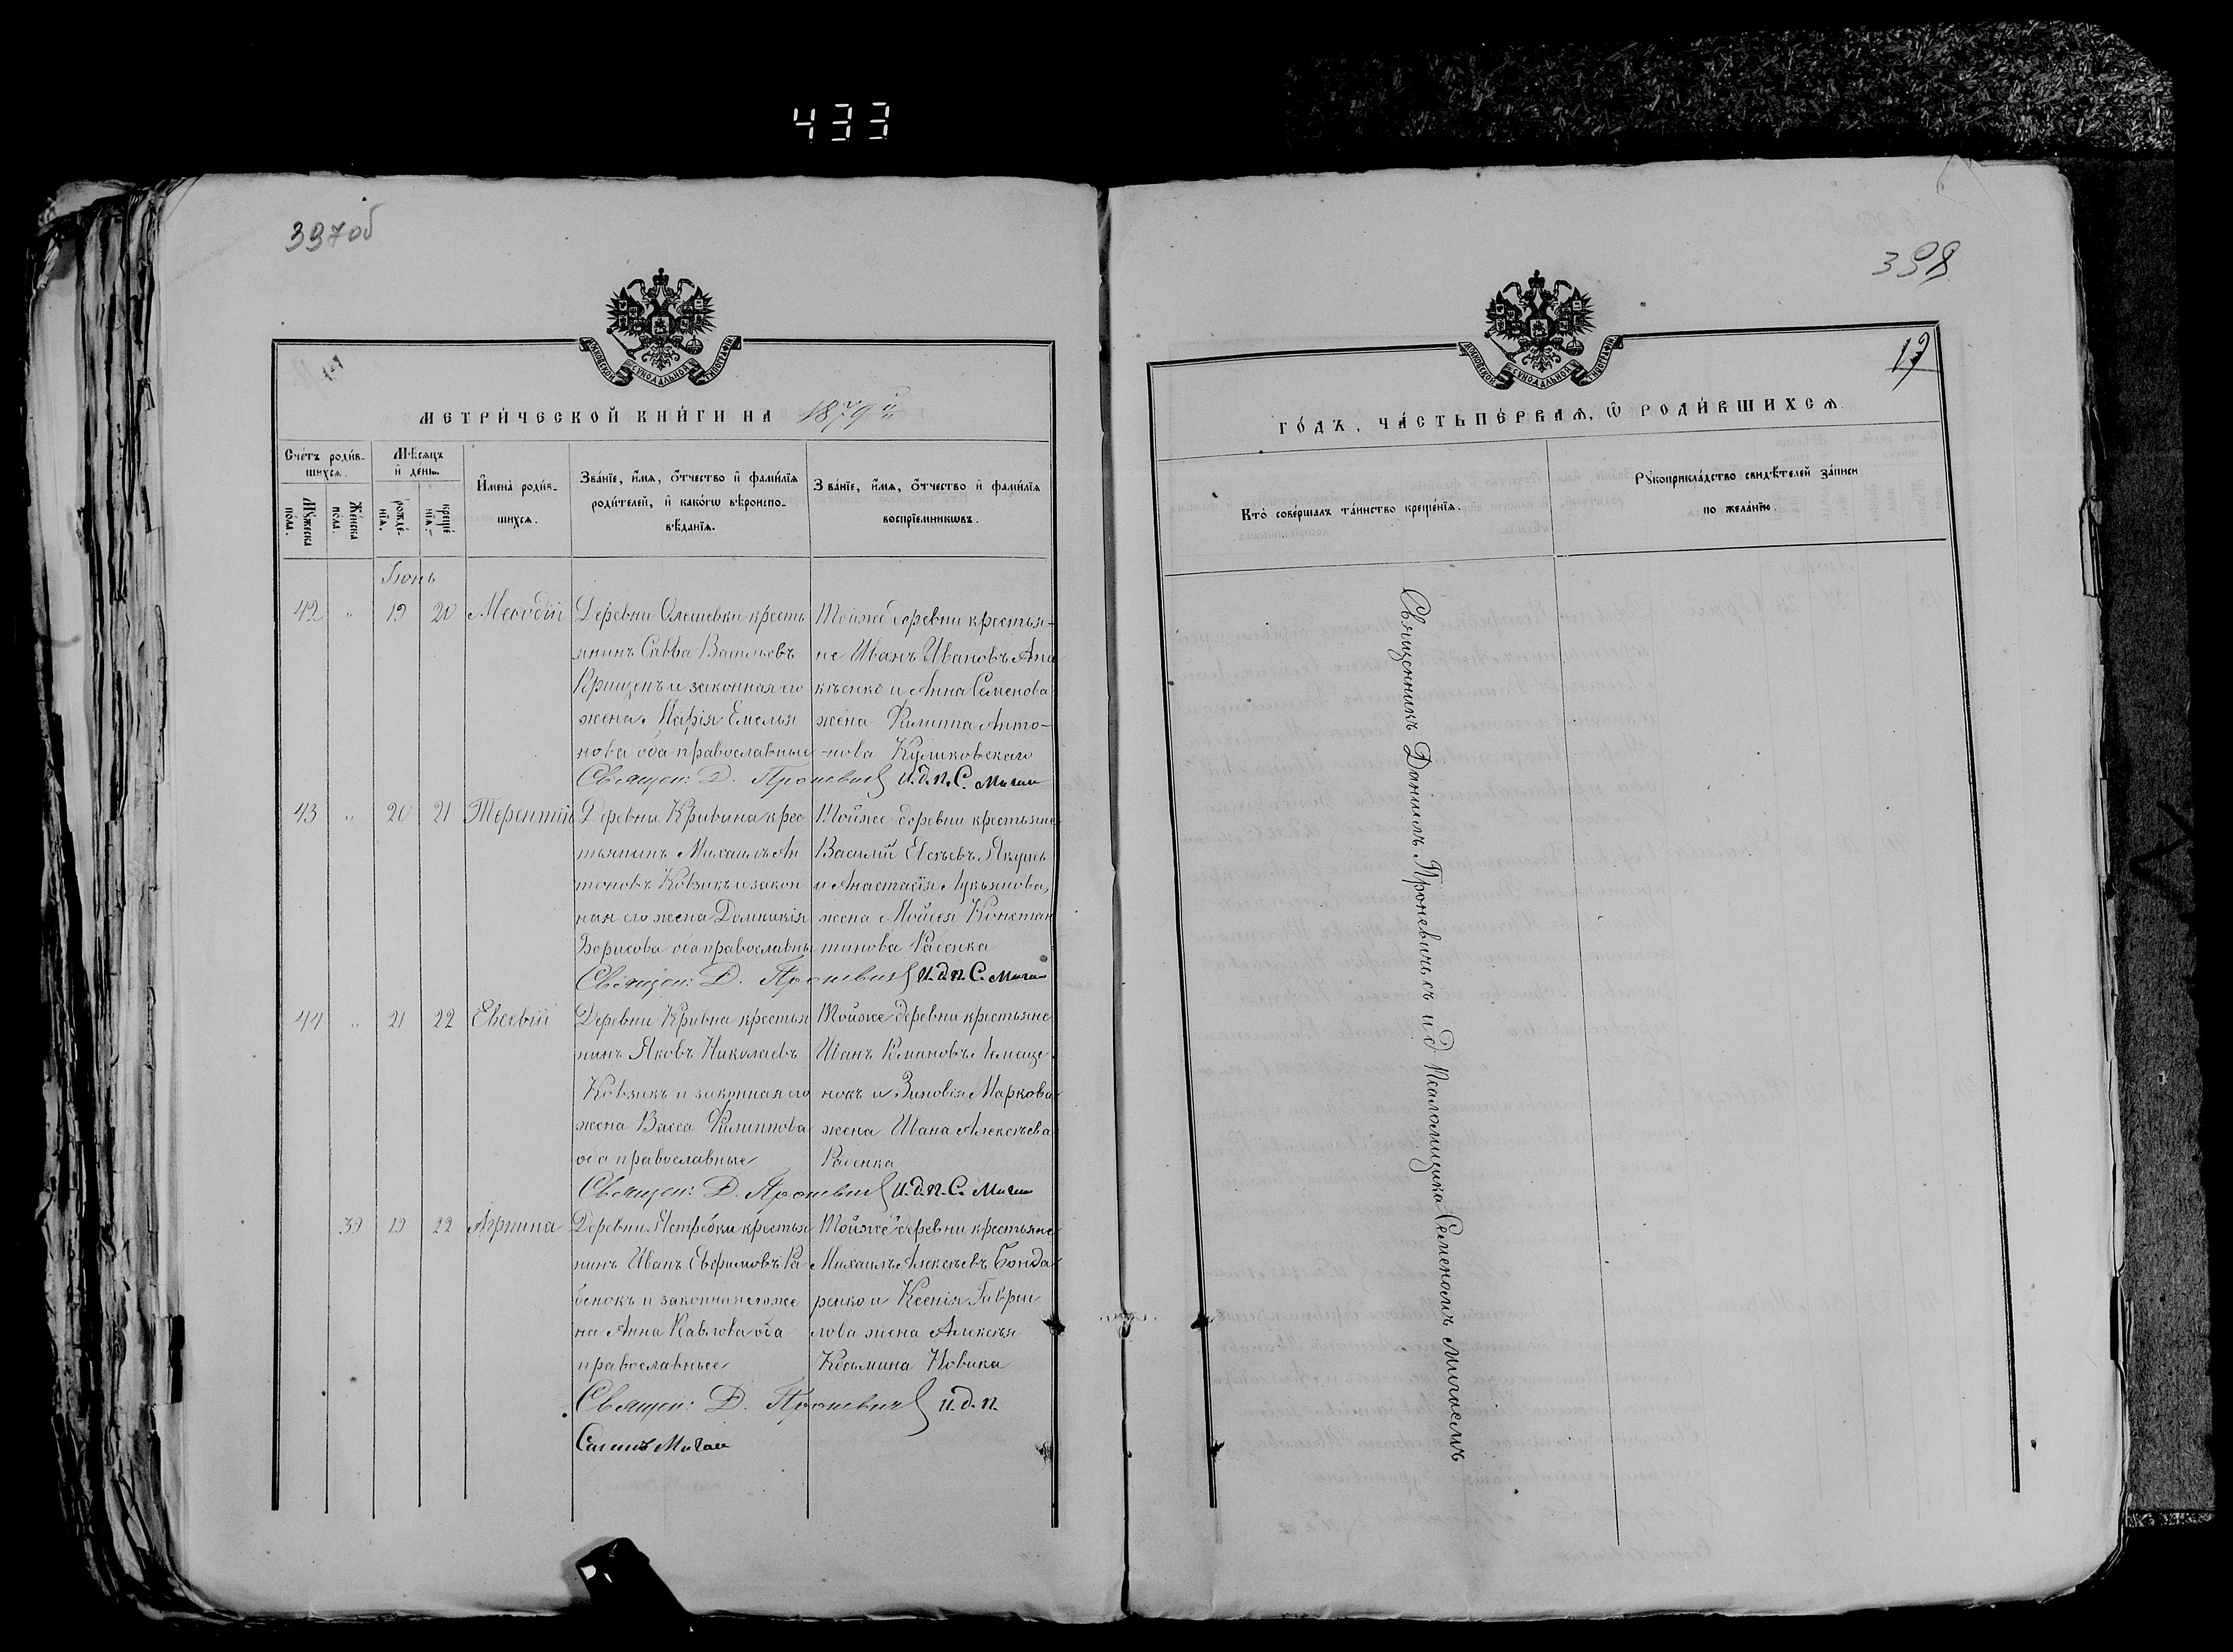 433
397об
МЕТРИ́ЧЕСКОЙ КНИ́ГИ НА 1879
Сче́тъ роди́в-
шихсѧ.
Мѣсѧцъ
и҆ день.
Мꙋжеска
по́ла.
Же́нска
по́ла.
рожде́-
нїѧ.
креще́
нїѧ.
И҆мена̀ роди́в-
шихсѧ.
Зва́нїе, и҆́мѧ, ѻ҆́тчество и҆ фами́лїѧ
роди́телей, и҆ како́гѡ вѣроиспо-
вѣданїѧ.
Зва́нїе, и҆́мѧ, ѻ҆́тчество и҆ фами́лїѧ
воспрїемникѡвъ.
Іюнь
42 " 19 20 Меѳодій Деревни Олешевки кресть
янинъ Савва Васильевъ
Крищенъ и законная его
жена Марія Емелья
нова оба православные
Тойже деревни крестья-
не Иванъ Ивановъ Ана
кѣенко и Анна Семенова
жена Филиппа Анто-
-нова Куликовскаго
Священ: Д. Проневичъ И.д.п. С. Мигай
43 " 20 21 Терентій Деревни Кривина крес
тьянинъ Михаилъ Ан
тоновъ Ковзикъ и закон
ная его жена Домникія
Борисова оба православны
Тойже деревни крестьяне
Василій Евсѣевъ Якушъ
и Анастасія Лукьянова,
жена Мойсея Констан
тинова Рабенка
Священ: Д. Проневичъ И.д.п. С. Мигай
44 " 21 22 Евсевій Деревни Кривна крестья
нинъ Яковъ Николаевъ
Ковзикъ и законная его
жена Васса Филиппова
оба православные
Тойже деревни крестьяне
Иванъ Романовъ Лемеще
нокъ и Зиновія Маркова
жена Ивана Алексѣева
Рабенка
Священ: Д. Проневичъ И.д.п. С. Мигай
39 19 22 Агрипина Деревни Ястребки крестья
нинъ Иванъ Евфимовъ Ра
бенокъ и законная его же
на Анна Павлова оба
православные
Тойже деревни крестьяне
Михаилъ Алексѣевъ Бонда
ренко и Ксенія Гаври
лова жена Алексѣя
Козьмина Новика
Священ: Д. Проневичъ И.д.п.
Семенъ Мигай
398
19
ГО́ДЪ, ЧА́СТЬ ПЕ́РВАѦ, Ѡ҆ РОДИ́ВШИХСѦ.
Кто̀ соверша́лъ та́инство креще́нїѧ.
Рꙋкоприкла́дство свидѣ́телей за́писи
по жела́нїю.
Священникъ Даніилъ Проневичъ съ и.д Псаломщика Семеномъ Мигаемъ